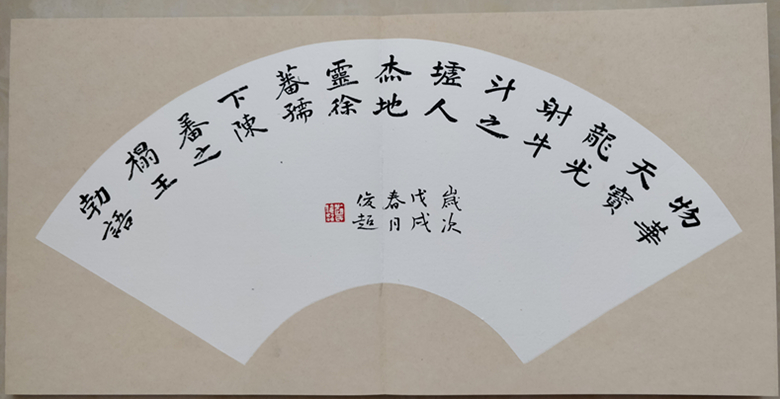 物華
天寶
龍光
射牛
斗之
墟人
杰地
靈徐
蕃孺
下陳
蕃之
榻王
勃語
歲次
戊戌
春月
俊超